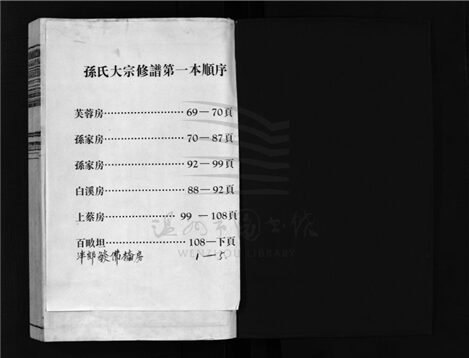 孫氏大宗修譜第一本順序
芙蓉房……………69—70頁
孫家房……………70—87頁
孫家房……………92—99頁
白溪房……………88—92頁
上蔡房……………99 —108頁
百畝坦……………108—下頁
房 1—5
温州市图书馆
WENZHOU LIBRARY